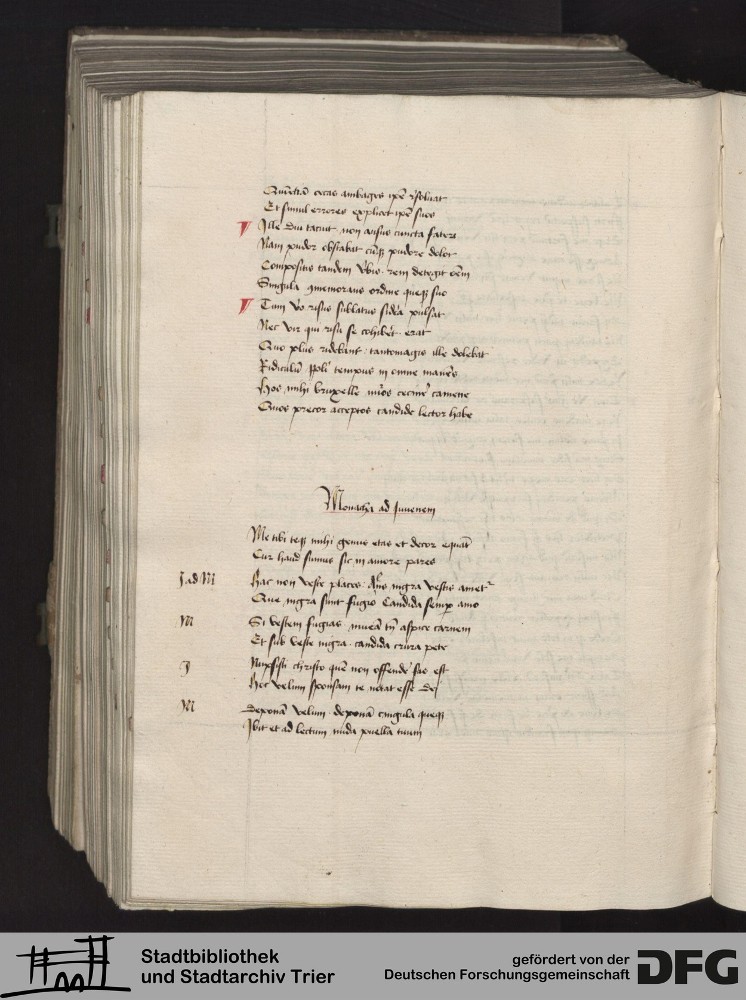 Quīetiā cecas ambages ip̄e rͥsoluat
Et simul errores explicet ip̄e suos
Ille diu tacuit non ausus cuncta fateri
Nam pudor obstabat cūqꝫ pudore dolor
Compositis tandem v̄bis rem detegit om̄em
Singula ꝯmemorans ordine queqꝫ suo
Tum v̄o risus sublatus sidēa pulsat
Nec vir qui risū se cohibēt erat
Quo plus ridebant tantomagis ille dolebat
Ridiculū tempus in omne manēs
Hos mihi bruxelle camene
Quos precor acceptos candide lector habe
Monacha ad Iuuenem
Me tibi teqꝫ mihi genus etas et decor equat
Cur haud sumus sic in amore pares
J ad M
Hac non veste places nigra vestis ametʳ
Que nigra sunt fugio Candida semp̱ amo
M
Si vestem fugias niueā tn̄ aspice carnem
Et sub veste nigra candida crura pete
J
Nupsisti christo quē non offendeʳ fas est
Hoc velum sponsam te notat esse dej
M
Deponā velum deponā cingula queqꝫ
Ibit et ad lectum nuda puella tuum
Stadtbibliothek
und Stadtarchiv Trier
gefördert von der
Deutschen Forschungsgemeinschaft
DFG